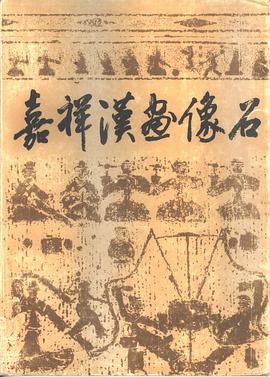 嘉祥漢畫像石